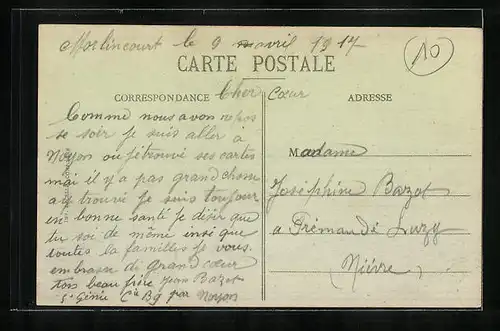 Morlincourt le 9 avril 1917
10
CARTE POSTALE
CORRESPONDANCE
Cher Cœur
ADRESSE
Comme nous avon repos
se soir je suis aller a
Noyon ou je trouvé ses cartes
mai il y a pas grand chose
a trouvé je suis toujour
en bonne santé je désir que
tu soi de même insi que
toutes la familles je vous
embrasse di grand cœur
tois beau père jean Bazot
5e Génie Cie B9 par Noyon
Madame
Joséphine Bazot
a Prémande Luzy
Nièvre